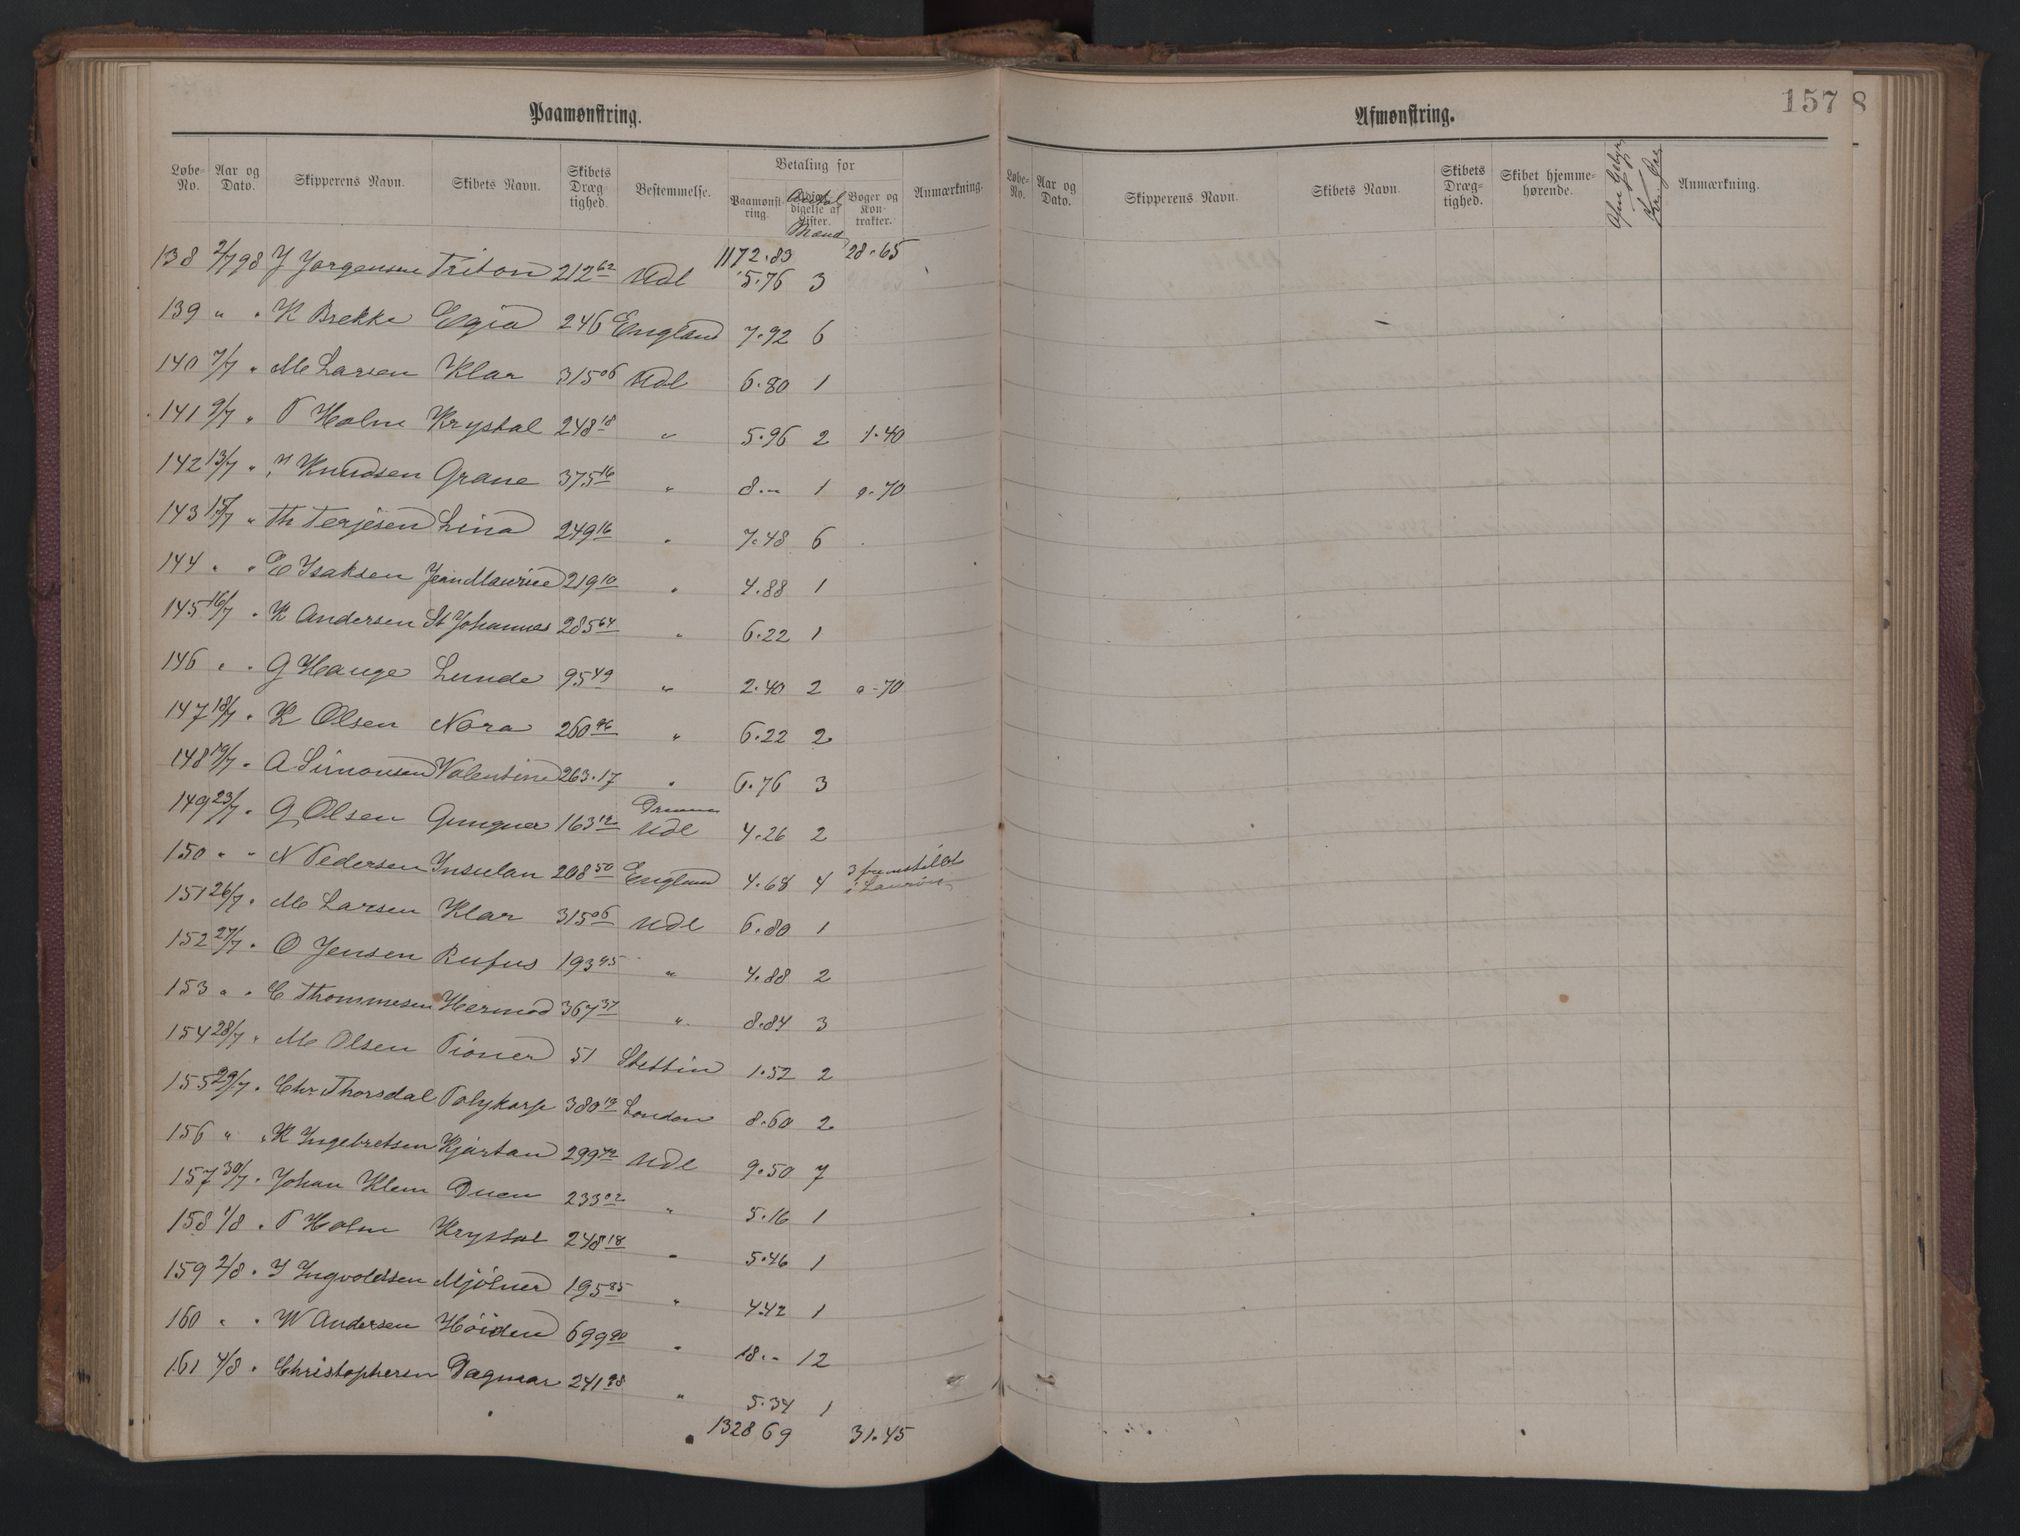 Paamønstring.
Løbe-No. Aar og Dato. Skipperens Navn. Skibets Navn. Skibets Dræg-tighed. Bestemmelse. Betaling for Anmærkning.
Paamønst-ring. Antal Mænd Bøger og Kon-trakter.
1172.83 28.65
138 2/7 98 J Jørgensen Triton 212 62 Udl 5.76 3
139 " " K Brekke Egia 246 England 7.92 6
140 7/7 " M Larsen Klar 315 06 Udl 6.80 1
141 9/7 " P Holm Krystal 248 18 " 5.96 2 1.40
142 13/7 " N Knudsen Grane 375 16 " 8.- 1 0.70
143 15/7 " Th Terjesen Lina 249 16 " 7.48 6
144 " " E Isaksen Jean Maurice 219 10 " 4.88 1
145 16/7 " K Andersen St Johannes 285 64 " 6.22 1
146 " " G Hauge Lunde 95 49 " 2.40 2 0.70
147 18/7 " K Olsen Nora 260 96 " 6.22 2
148 19/7 " A Simonsen Valentine 263.17 " 6.76 3
149 23/7 " G Olsen Gungner 163 12 Udl 4.26 2
150 " " N Pedersen Insulan 208 50 England 4.68 4 3 fremstillet i
151 26/7 " M Larsen Klar 315 06 Udl 6.80 1
152 27/7 " O Jensen Rufus 193 45 " 4.88 2
153 " " C Thommesen Hermod 367 37 " 8.84 3
154 28/7 " M Olsen Pioner 51 Stettin 1.52 2
155 29/7 " Chr. Thorsdal Polykarp 380 19 London 8.60 2
156 " " K Ingebretsen Kjartan 299 42 Udl 9.50 7
157 30/7 " Johan Klem Duen 233 02 " 5.16 1
158 1/8 " P Holm Krystal 248 18 " 5.46 1
159 2/8 " I Ingvoldsen Mjölner 195 85 " 4.42 1
160 " " W Andersen Höiden 699 90 " 18.- 12
161 4/8 " Christophersen Dagmar 241 98 " 5.34 1
1328 69 31.45
157 8
Afmønstring.
Løbe-No. Aar og Dato. Skipperens Navn. Skibets Navn. Skibets Dræg-tighed. Skibet hjemme-hørende. Anmærkning.